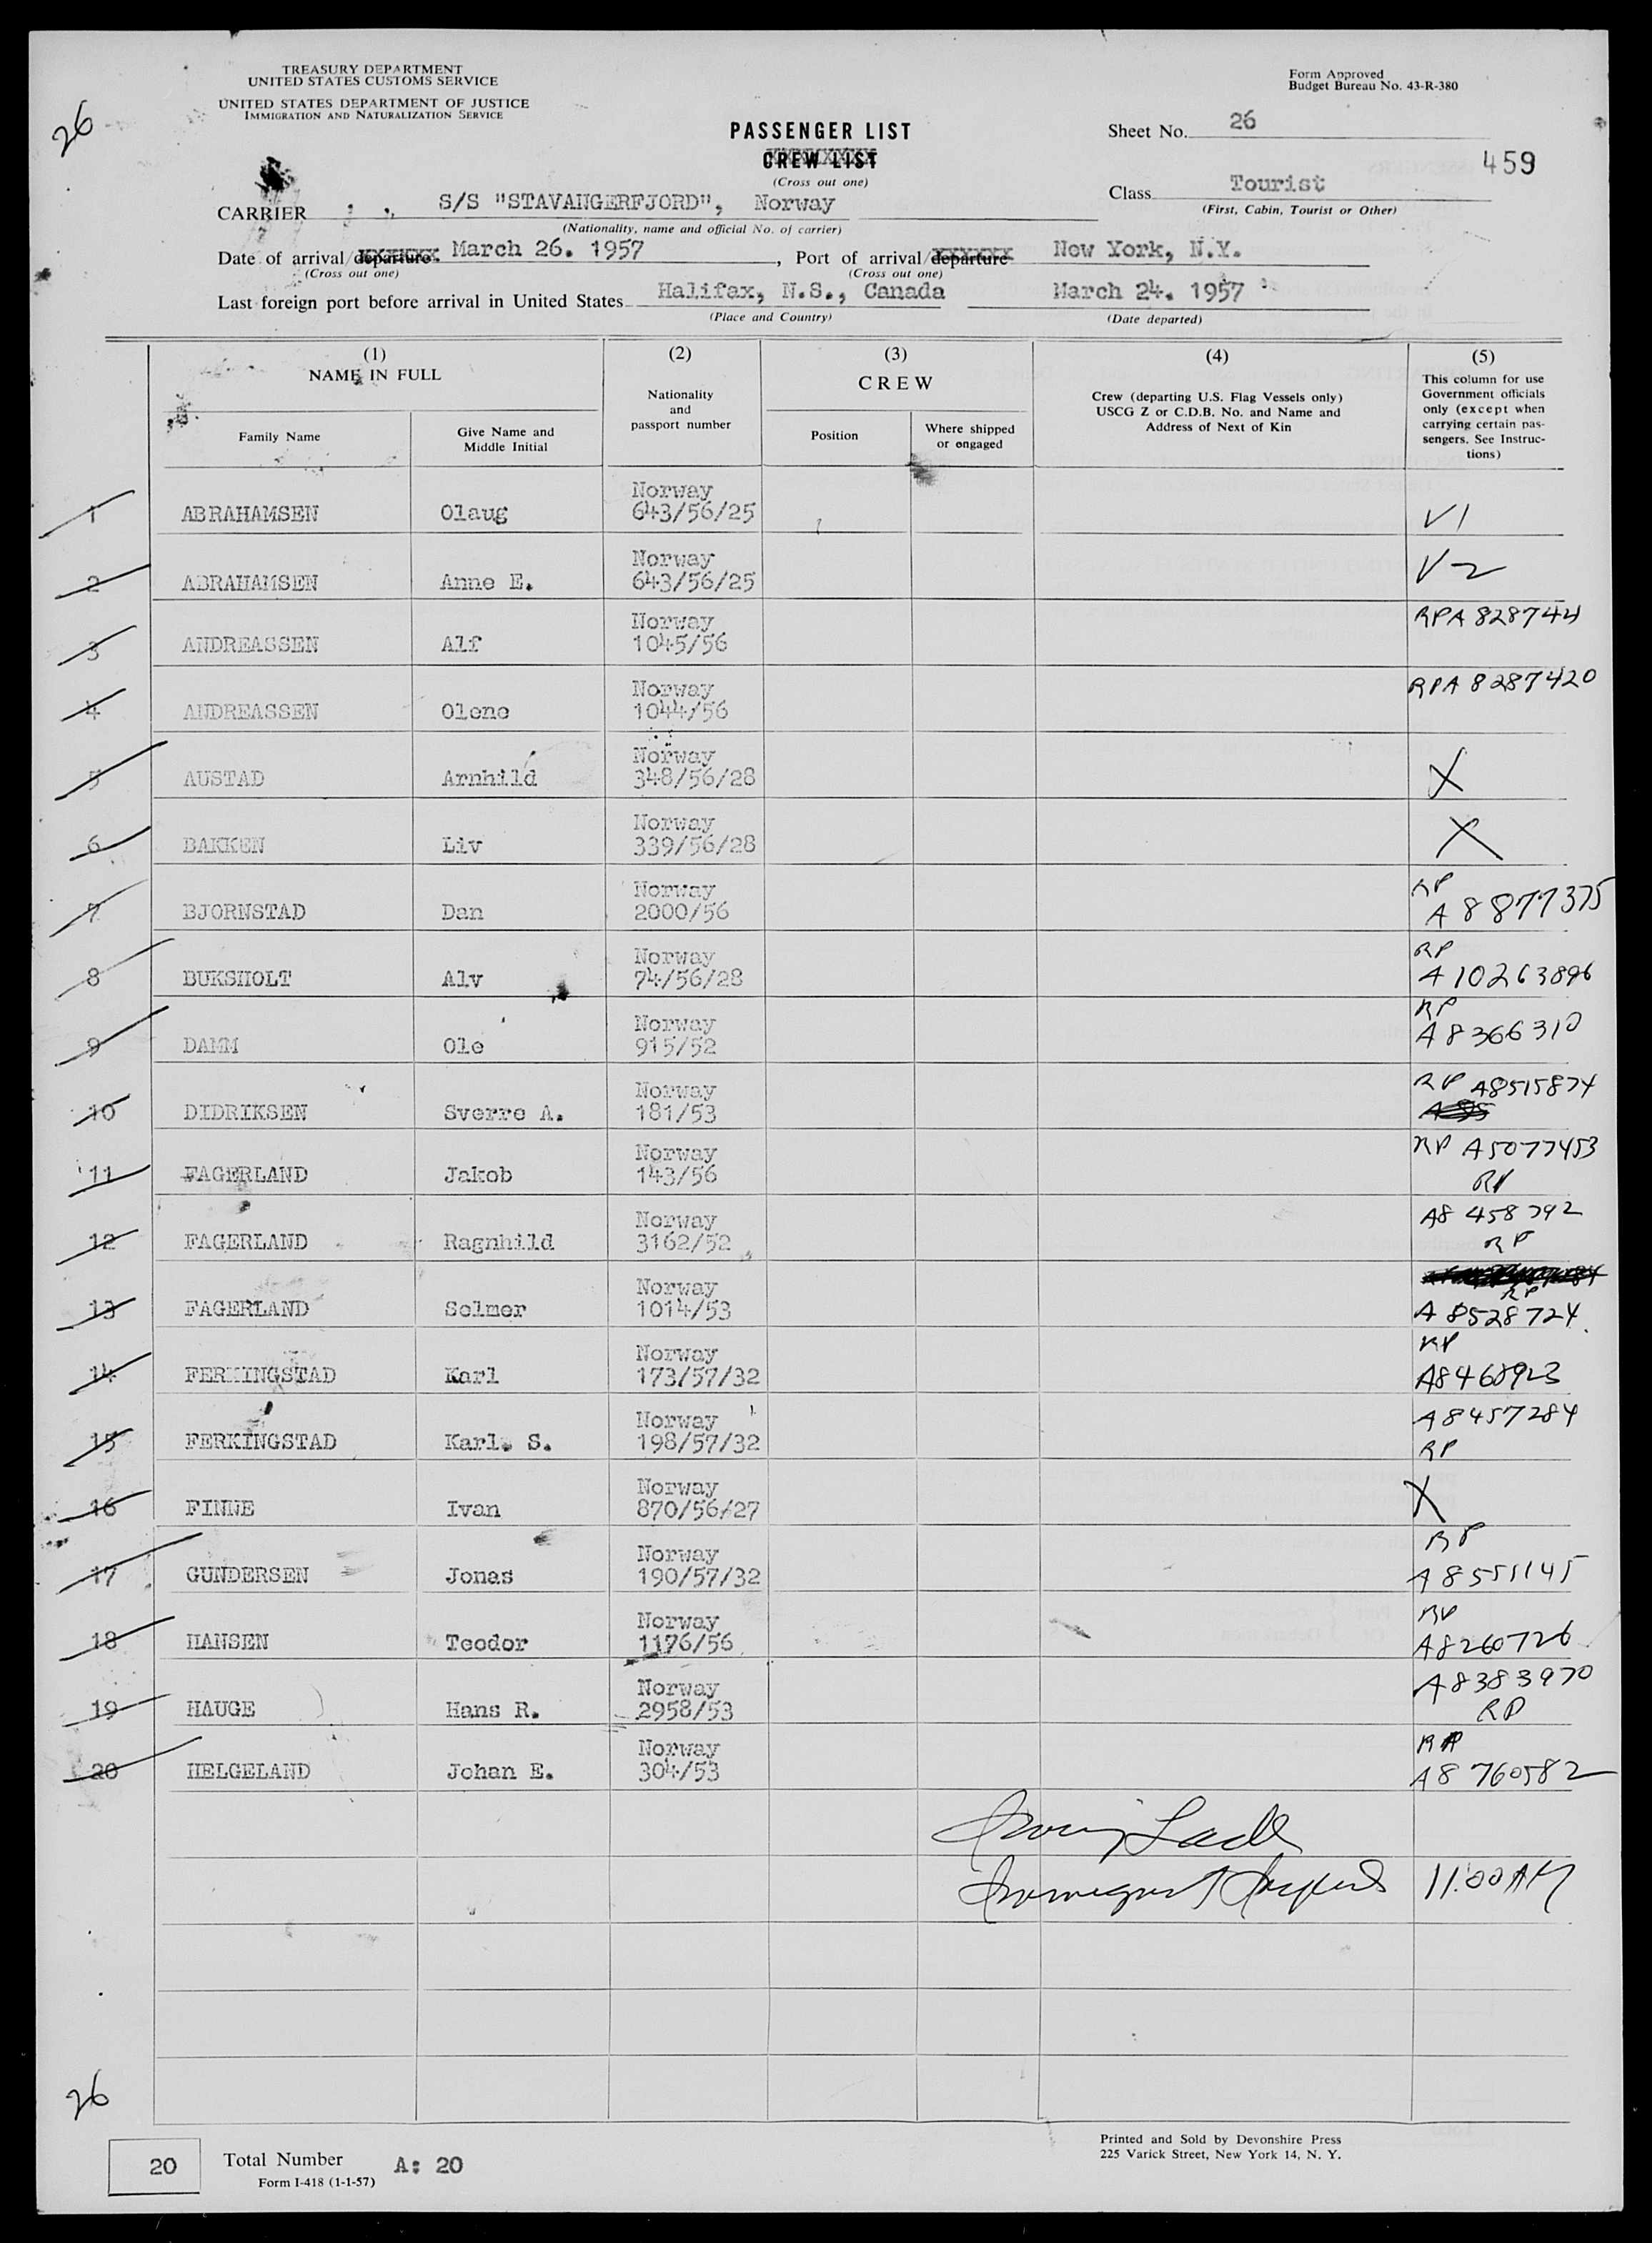 TREASURY DEPARTMENT
UNITED STATES CUSTOMS SERVICE
UNITED STATES DEPARTMENT OF JUSTICE
IMMIGRATION AND NATURALIZATION SERVICE
Form Approved
Budget Bureau No. 43-R-380
26
PASSENGER LIST
CREW LIST
(Cross out one)
Sheet No. 26
459
Class Tourist
(First, Cabin, Tourist or Other)
CARRIER S/S "STAVANGERFJORD", Norway
(Nationality, name and official No. of carrier)
Date of arrival/departure March 26. 1957, Port of arrival/departure New York, N.Y.
(Cross out one) (Cross out one)
Last foreign port before arrival in United States Halifax, N.S., Canada March 24. 1957
(Place and Country) (Date departed)
(1) (2) (3) (4) (5)
NAME IN FULL
Family Name
Give Name and
Middle Initial
Nationality
and
passport number
CREW
Position
Where shipped
or engaged
Crew (departing U.S. Flag Vessels only)
USCG Z or C.D.B. No. and Name and
Address of Next of Kin
This column for use
Government officials
only (except when
carrying certain pas-
sengers. See Instruc-
tions)
Norway
1 ABRAHAMSEN Olaug 643/56/25 V1
Norway
2 ABRAHAMSEN Anne E. 643/56/25 V2
Norway RPA
3 ANDREASSEN Alf 1045/56
Norway RPA 8287420
4 ANDREASSEN Olene 1044/56
Norway
5 AUSTAD Arnhild 348/56/28 X
Norway
6 BAKKEN Liv 339/56/28 X
Norway RP
7 BJORNSTAD Dan 2000/56 A 8877375
Norway RP
8 BUKSHOLT Alv 74/56/28 A 10263896
Norway RP
9 DAMM Ole 915/52 A 8366310
Norway RP A8515874
10 DIDRIKSEN Sverre A. 181/53
Norway RP A5077453
11 FAGERLAND Jakob 143/56 RP
Norway A8 458792
12 FAGERLAND Ragnhild 3162/52 RP
Norway RP
13 FAGERLAND Selmer 1014/53 A 8528724
Norway RP
14 FERKINGSTAD Karl 173/57/32 A8460923
Norway A8457284
15 FERKINGSTAD Karl. S. 198/57/32 RP
Norway
16 FINNE Ivan 870/56/27 X
Norway RP
17 GUNDERSEN Jonas 190/57/32 A8551145
Norway RP
18 HANSEN Teodor 1176/56 A8260726
Norway A8383970
19 HAUGE Hans R. 2958/53 RP
Norway RP
20 HELGELAND Johan E. 304/53 A8760582
Immigrant Inspector 11:00 AM
26
20 Total Number A: 20
Form I-418 (1-1-57)
Printed and Sold by Devonshire Press
225 Varick Street, New York 14, N. Y.